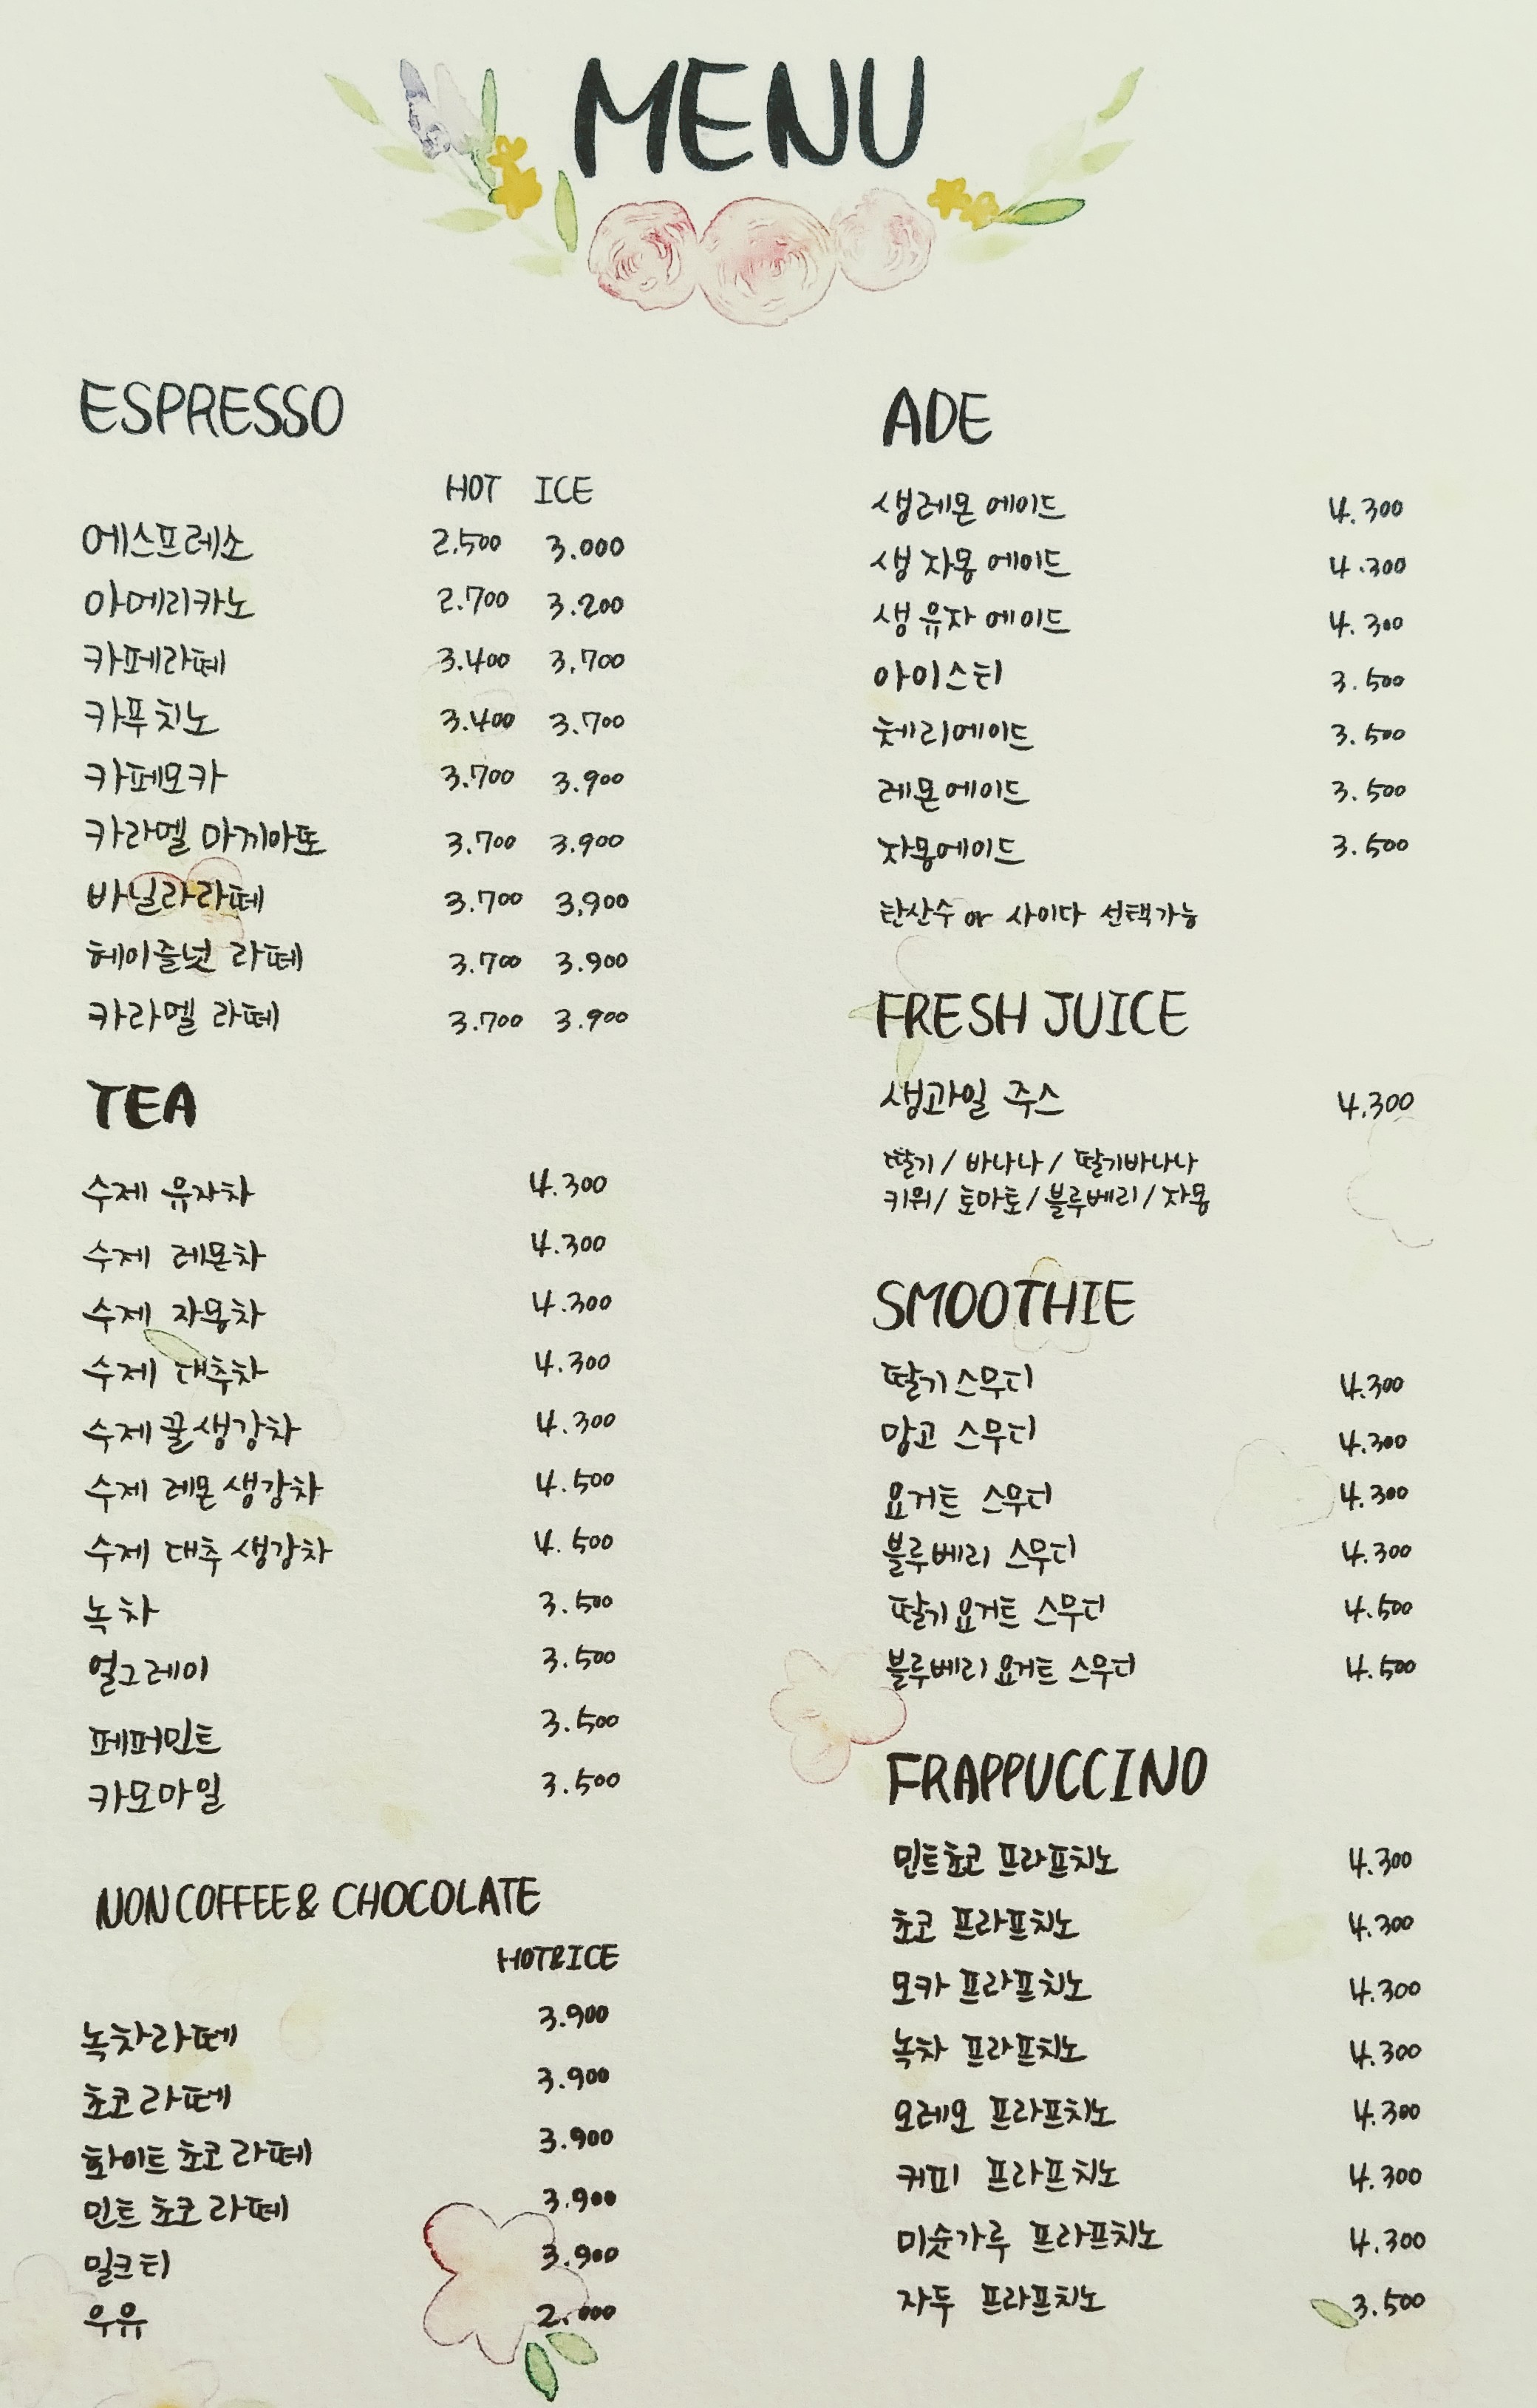 MENU
ESPRESSO
HOT ICE
에스프레소 2.500 3.000
아메리카노 2.700 3.200
카페라떼 3.400 3.700
카푸치노 3.400 3.700
카페모카 3.700 3.900
카라멜 마끼아또 3.700 3.900
바닐라라떼 3.700 3.900
헤이즐넛 라떼 3.700 3.900
카라멜 라떼 3.700 3.900
TEA
수제 유자차 4.300
수제 레몬차 4.300
수제 자몽차 4.300
수제 대추차 4.300
수제 꿀생강차 4.300
수제 레몬 생강차 4.500
수제 대추 생강차 4.500
녹차 3.500
얼그레이 3.500
페퍼민트 3.500
카모마일 3.500
NON COFFEE & CHOCOLATE
HOT&ICE
녹차라떼 3.900
초코라떼 3.900
화이트 초코 라떼 3.900
민트 초코 라떼 3.900
밀크티 3.900
우유 2.000
ADE
생레몬 에이드 4.300
생 자몽 에이드 4.300
생 유자 에이드 4.300
아이스티 3.500
체리에이드 3.500
레몬에이드 3.500
자몽에이드 3.500
탄산수 or 사이다 선택가능
FRESH JUICE
생과일 주스 4.300
딸기 / 바나나 / 딸기바나나
키위 / 토마토 / 블루베리 / 자몽
SMOOTHIE
딸기 스무디 4.300
망고 스무디 4.300
요거트 스무디 4.300
블루베리 스무디 4.300
딸기 요거트 스무디 4.500
블루베리 요거트 스무디 4.500
FRAPPUCCINO
민트초코 프라프치노 4.300
초코 프라프치노 4.300
모카 프라프치노 4.300
녹차 프라프치노 4.300
오레오 프라프치노 4.300
커피 프라프치노 4.300
미숫가루 프라프치노 4.300
자두 프라프치노 3.500